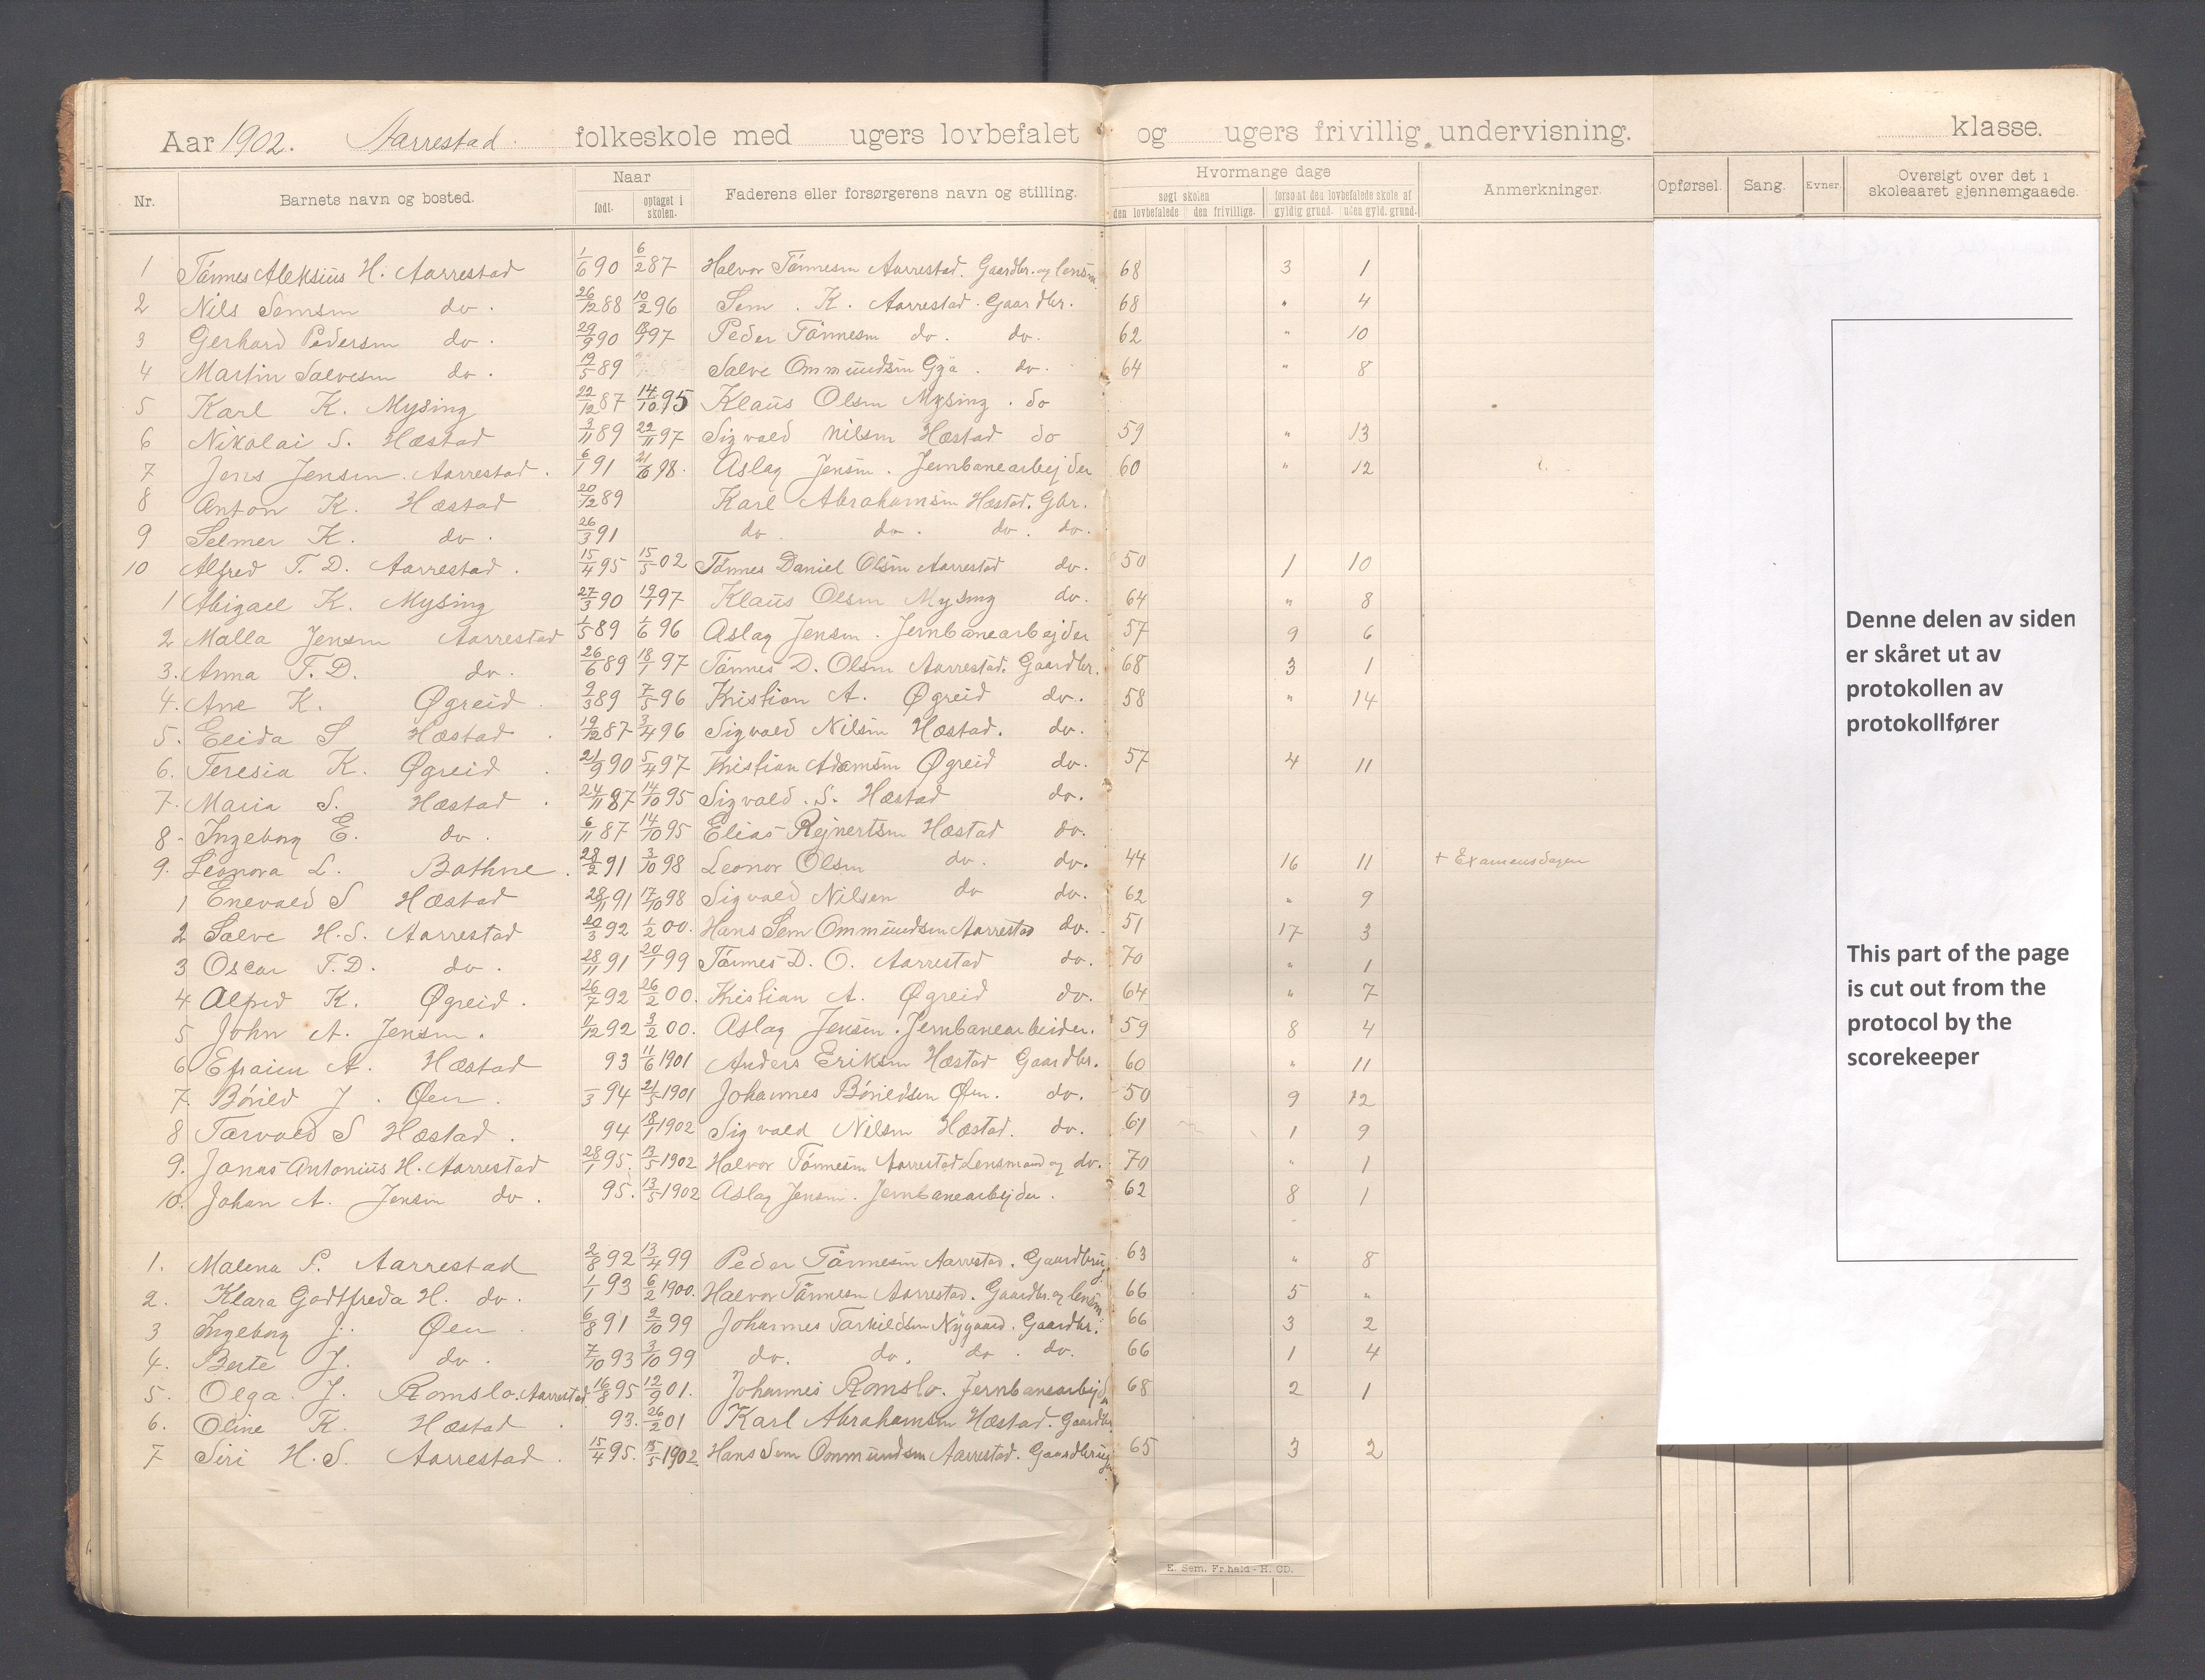 Aar 1902. Aarrestad folkeskole med ugers lovbefalet og ugers frivillig undervisning. klasse.
Nr. Barnets navn og bosted. Naar født. optaget i skolen. Faderens eller forsørgerens navn og stilling. Hvormange dage søgt skolen den lovbefalede den frivillige. forsømt den lovbefalede skole af gyldig grund. uden gyld. grund. Anmerkninger. Opførsel. Sang. Evner. Oversigt over det i skoleaaret gjennemgaaede.
1 Tönnes Aleksius H. Aarrestad 1/6 90 6/2 87 Halvor Tönnesen Aarrestad. Gaardbr. og lensm. 68 3 1
2 Nils Semsen do. 26/12 88 10/2 96 Sem. K. Aarrestad. Gaardbr. 68 " 4
3 Gerhard Pedersen do. 29/9 90 97 Peder Tönnesen do. do. 62 " 10
4 Martin Salvesen do. 19/5 89 Salve Ommundsen do. 64 " 8
5 Karl K. Mysing 22/12 87 14/10 95 Klaus Olsen Mysing. do
6 Nikolai S. Hæstad 3/11 89 22/11 97 Sigvald Nilsen Hæstad do 59 " 13
7 Jens Jensen. Aarrestad. 6/1 91 21/6 98. Aslag Jensen. Jernbanearbejder 60 " 12
8 Anton K. Hæstad 20/12 89 Karl Abrahamsen Hæstad. Gbr.
9 Selmer K. do. 26/3 91 do. do. do. do.
10 Alfred T. D. Aarrestad. 15/4 95 15/5 02 Tönnes Daniel Olsen Aarrestad do. 50 1 10
1 Abigael K. Mysing 27/3 90 19/1 97 Klaus Olsen Mysing do. 64 " 8
2 Malla Jensen Aarrestad 1/5 89 1/6 96 Aslag Jensen. Jernbanearbejder 57 9 6
3. Anna T. D. do. 26/6 89 18/1 97 Tönnes D. Olsen Aarrestad. Gaardbr. 68 3 1
4. Ane K. Øgreid. 9/3 89 7/5 96 Kristian A. Øgreid do. 58 " 14
5. Elida S Hæstad. 19/12 87 3/4 96 Sigvald Nilsen Hæstad. do.
6. Teresia K. Øgreid. 21/9 90 5/4 97 Kristian Adamsen Øgreid do. 57 4 11
7. Maria S. Hæstad. 24/11 87 14/10 95 Sigvald. S. Hæstad do.
8. Ingeborg E. do. 6/11 87 14/10 95 Elias Rejnertsen Hæstad do.
9. Leonora L. Bothne. 28/2 91 3/10 98 Leonor Olsen do. do. 44 16 11 + Examensdagen
1 Enevald S Hæstad 28/11 91 17/10 98 Sigvald Nilsen do do. 62 " 9
2 Salve H. S. Aarrestad 20/3 92 1/2 00. Hans Sem Ommundsen Aarrestad do. 51 17 3
3 Oscar T. D. do. 28/11 91 20/1 99 Tönnes D. O. Aarrestad do. 70 " 1
4 Alfred K. Øgreid. 26/7 92 26/2 00. Kristian A. Øgreid do. 64 " 7
5 John A. Jensen. 11/12 92 9/2 00. Aslag Jensen. Jernbanearbeider. 59 8 4
6 Efraim A. Hæstad 93 11/6 1901 Anders Eriksen Hæstad Gaardbr. 60 " 11
7. Börild J. Øen. /3 94 21/5 1901 Johannes Börildsen Øen. do. 50 9 12
8 Tarvald S Hæstad. 94 18/1 1902 Sigvald Nilsen Hæstad. do. 61 1 9
9. Jonas Antonius H. Aarrestad 28/1 95. 13/5 1902 Halvor Tönnesen Aarrestad Lensmand og do. 70 " 1
10. Johan A. Jensen do. 95. 13/5 1902 Aslag Jensen. Jernbanearbejder. 62 8 1
1. Malena P. Aarrestad 2/8 92 13/4 99 Peder Tönnesen Aarrestad. Gaardbrug. 63 " 8
2. Klara Godtfreda H. do. 1/1 93 6/2 1900. Halvor Tönnesen Aarrestad. Gaardbr. og lensm. 66 5 "
3 Ingeborg J. Øen. 6/8 91 2/10 99 Johannes Tarkildsen Nygaard. Gaardbr. 66 3 2
4. Berte J. do. 7/10 93 3/10 99 do. do. do. do. 66 1 4
5. Olga J. Romslo. Aarrestad 16/8 95 12/9 01. Johannes Romslo. Jernbanearbejder 68 2 1
6. Oline K. Hæstad. 93. 26/2 01 Karl Abrahamsen Hæstad. Gaardbr.
7 Siri H. S. Aarrestad. 15/4 95. 15/5 1902. Hans Sem Ommundsen Aarrestad. Gaardbruger. 65 3 2
E. Sem. Fr.hald - H. CD.
Denne delen av siden
er skåret ut av
protokollen av
protokollfører
This part of the page
is cut out from the
protocol by the
scorekeeper